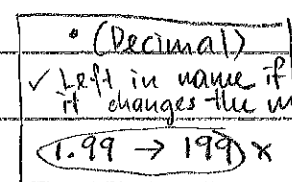 • (Decimal)
✓ Left in name if
it changes the
1.99 → 199 x